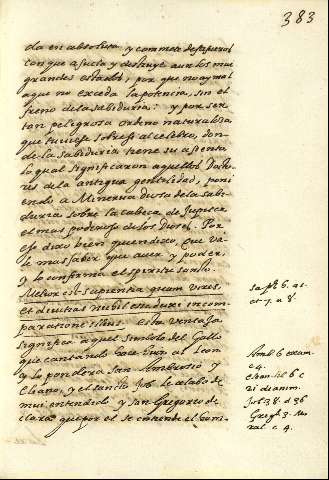 383
da en absoluta, y comete desafueros
con que asuela y destruye aun los mui
grandes estados, por que no ay mal
a que no exceda la potencia, sin el
freno de la sabiduria: y por ser
tan peligrosa ordeno naturaleza
que tuviese sobre si al celebro, don-
de la sabiduria tiene su asiento
lo qual significaron aquellos Docto-
res de la antigua gentilidad, poni
endo a Minerva diosa de la sabi-
duria sobre la cabeça de Jupiter
el mas poderoso de los Dioses. Por
eso dixo bien quien dixo, que va-
le mas saber que aver y poder,
y lo confirma el spiritu sancto.
Melior est sapientia quam vires,
et divitias nihil esse duxi in com-
paratione illius. esta ventaja
significa aquel simbolo del Gallo
que cantando haze huir al Leon
y lo pondera San Ambrosio y
Eliano, y el sancto Job le alaba de
mui entendido y san Gregorio de-
clara que por el se entiende el homi-
sap. 6. a. 1.
et 7. a 8.
Amb. 6 exam.
c 4.
Elian. lib 6 c
22 di anim.
Job 38. d 36
Greg. lib 3. Mo
ral c 4.